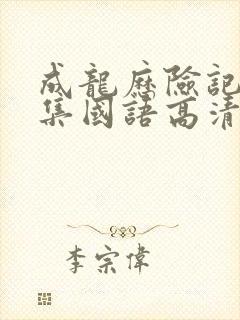 成龍歷險記
集國語高清
李宗偉